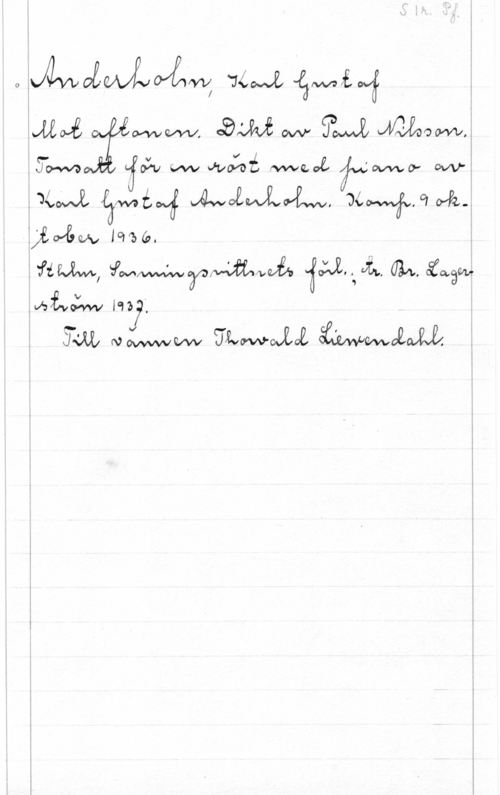 S 1 r. Pf.
Anderholm, Karl Gustaf
Mot aftonen. Dikt av Paul Nilsson.
Tonsatt för en röst med piano av
Karl Gustaf Anderholm. Komp. 9 ok-
tober 1936.
Sthlm, Sanningsvittnets förl.; tr. Br. Lager-
ström 1937.
Till vännen Thorvald Liewendahl.